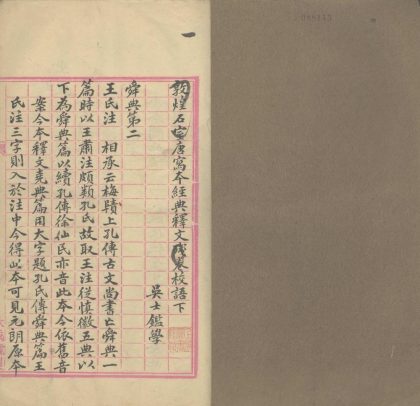 一
敦煌石室唐寫本經典釋文殘卷校語下
吳士鑑學
舜典第二
王氏注 相承云梅賾上孔傳古文尚書亡舜典一
篇時以王肅注頗類孔氏故取王注從慎徽五典以
下為舜典篇以續孔傳徐仙民亦音此本今依舊音
案今本釋文堯典篇用大字題孔氏傳舜典篇王
氏注三字則入於注中今得此本可見元朗原本